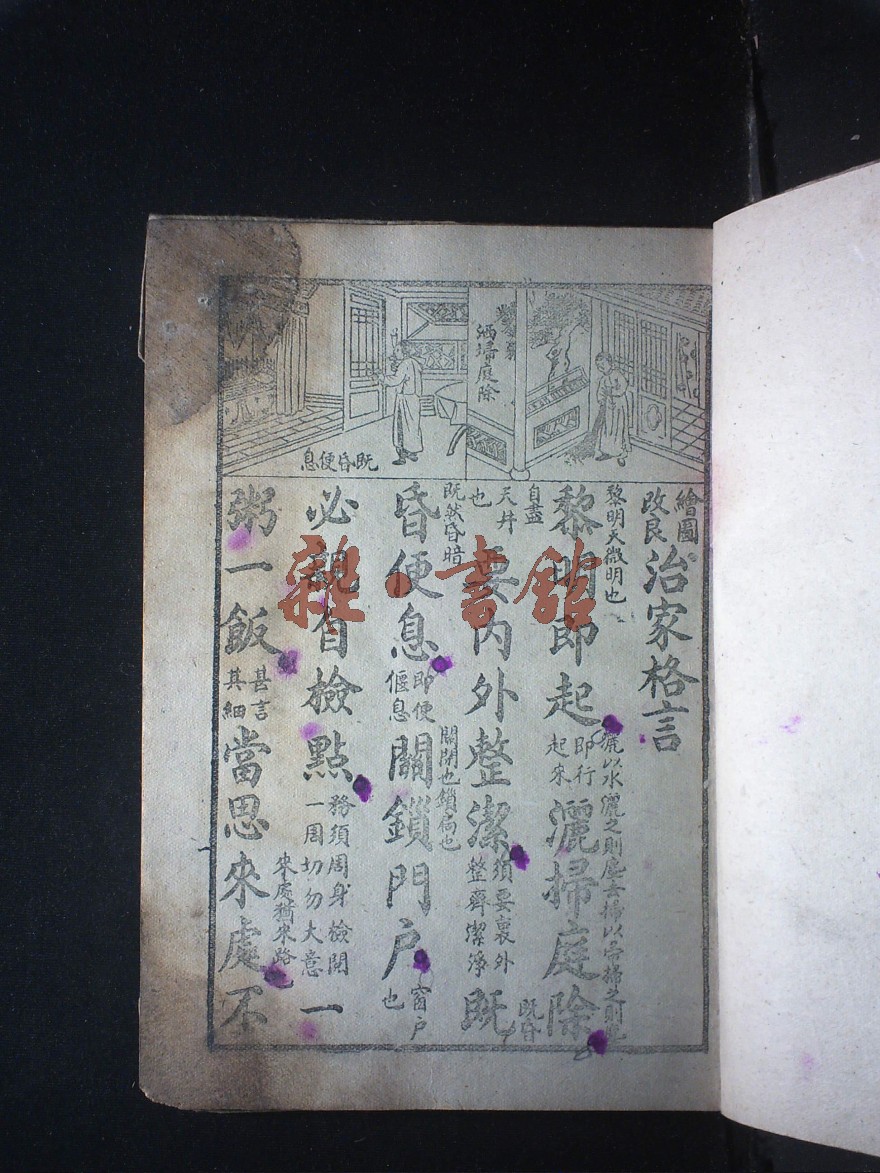 洒埽庭除
既昏便息
繪圖改良治家格言
黎明天微明也
黎明即起即行起來灑掃庭除
灑以水灑之則塵去掃以帚掃之則
自盡天井也要內外整潔須要裏外整齊潔淨既
既昏
既然昏暗
昏便息即便偃息關鎖門戶窗户也
關閉也鎖扃也
必親自檢點務須周身檢閱一周切勿大意一
粥一飯甚言其細當思來處不
來處猶來路
雜·書館